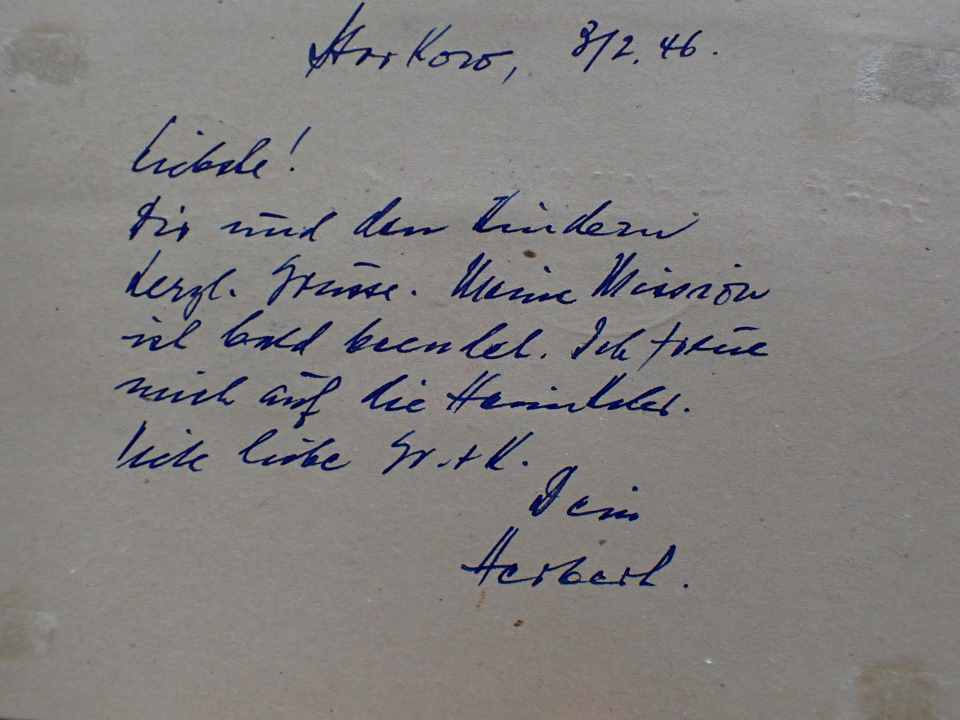 Харkow, 3/2. 46.
Liebste!
Dir und den Kindern
herzl. Grüsse. Meine Mission
ist bald beendet. Ich freue
mich auf die Heimkehr.
Viele liebe Gr. + K.
Dein
Herbert.